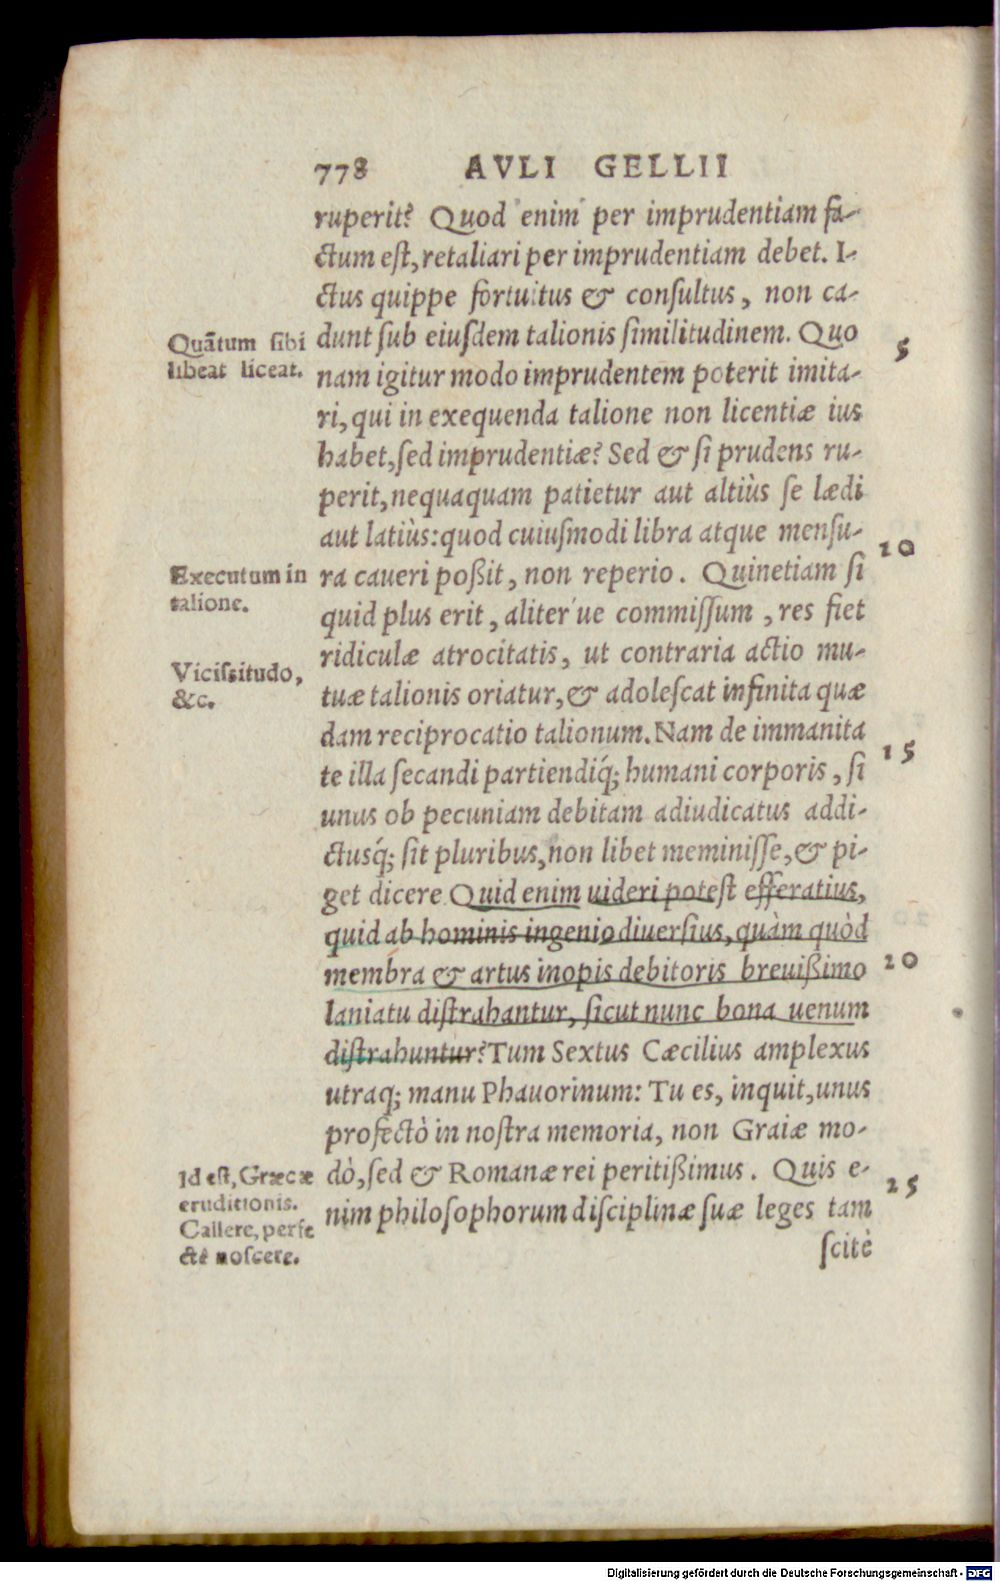 778 AVLI GELLII
ruperit? Quod enim per imprudentiam fa-
ctum eſt, retaliari per imprudentiam debet. I-
ctus quippe fortuitus & conſultus, non ca-
dunt ſub eiuſdem talionis ſimilitudinem. Quo
5
nam igitur modo imprudentem poterit imita-
ri, qui in exequenda talione non licentiæ ius
habet, ſed imprudentiæ? Sed & ſi prudens ru-
perit, nequaquam patietur aut altiùs ſe lædi
aut latiùs: quod cuiuſmodi libra atque menſu-
10
ra caueri poßit, non reperio. Quinetiam ſi
quid plus erit, aliter ue commiſſum, res fiet
ridiculæ atrocitatis, ut contraria actio mu-
tuæ talionis oriatur, & adoleſcat infinita quæ
dam reciprocatio talionum. Nam de immanita
15
te illa ſecandi partiendiq́; humani corporis, ſi
unus ob pecuniam debitam adiudicatus addi-
ctusq́; ſit pluribus, non libet meminiſſe, & pi-
get dicere. Quid enim uideri poteſt efferatius,
quid ab hominis ingenio diuerſius, quàm quòd
membra & artus inopis debitoris breuißimo
20
laniatu diſtrahantur, ſicut nunc bona uenum
diſtrahuntur? Tum Sextus Cæcilius amplexus
utraq; manu Phauorinum: Tu es, inquit, unus
profectò in noſtra memoria, non Graiæ mo-
dò, ſed & Romanæ rei peritißimus. Quis e-
25
nim philoſophorum diſciplinæ ſuæ leges tam
ſcitè
Quãtum ſibi
libeat liceat.
Executum in
talione.
Viciſsitudo,
&c.
Id eſt, Græcæ
eruditionis.
Callere, perfe
ctè noſcere.
Digitalisierung gefördert durch die Deutsche Forschungsgemeinschaft - DFG